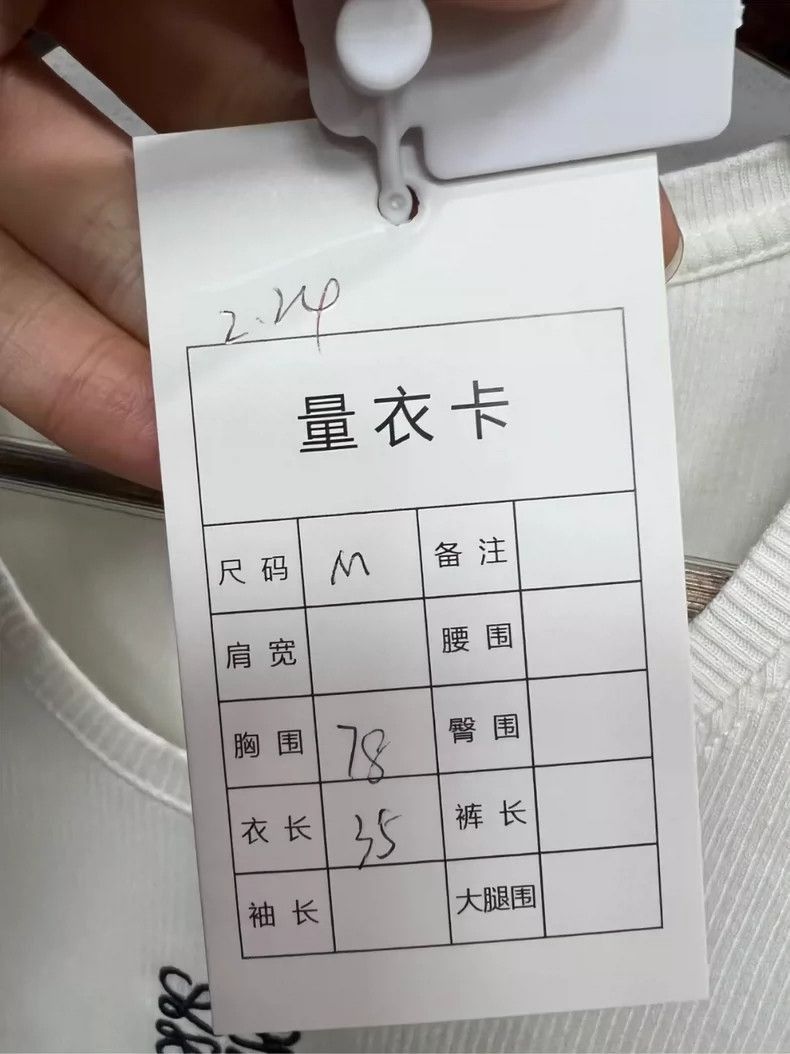 2.24
量衣卡
尺码 M 备注
肩宽 腰围
胸围 78 臀围
衣长 35 裤长
袖长 大腿围